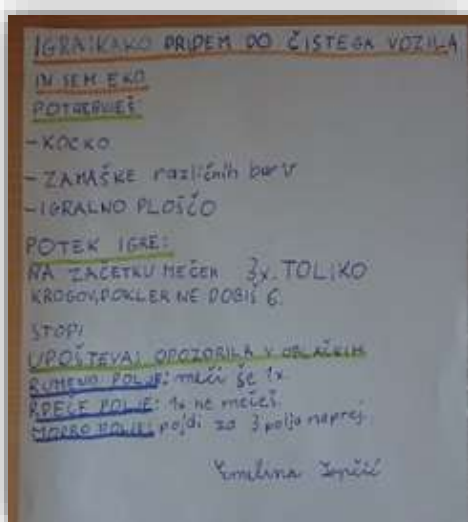 IGRA: KAKO PRIDEM DO ČISTEGA VOZILA
IN SEM EKO
POTREBUJEŠ:
-KOCKO
-ZAMAŠKE različnih barv
-IGRALNO PLOŠČO
POTEK IGRE:
NA ZAČETKU MEČEŠ 3x. TOLIKO
KROGOV, DOKLER NE DOBIŠ 6.
STOP!
UPOŠTEVAJ OPOZORILA V OBLAČKIH
RUMENO POLJE: meči še 1x
RDEČE POLJE: 1x ne mečeš.
MODRO POLJE: pojdi za 3 polja naprej.